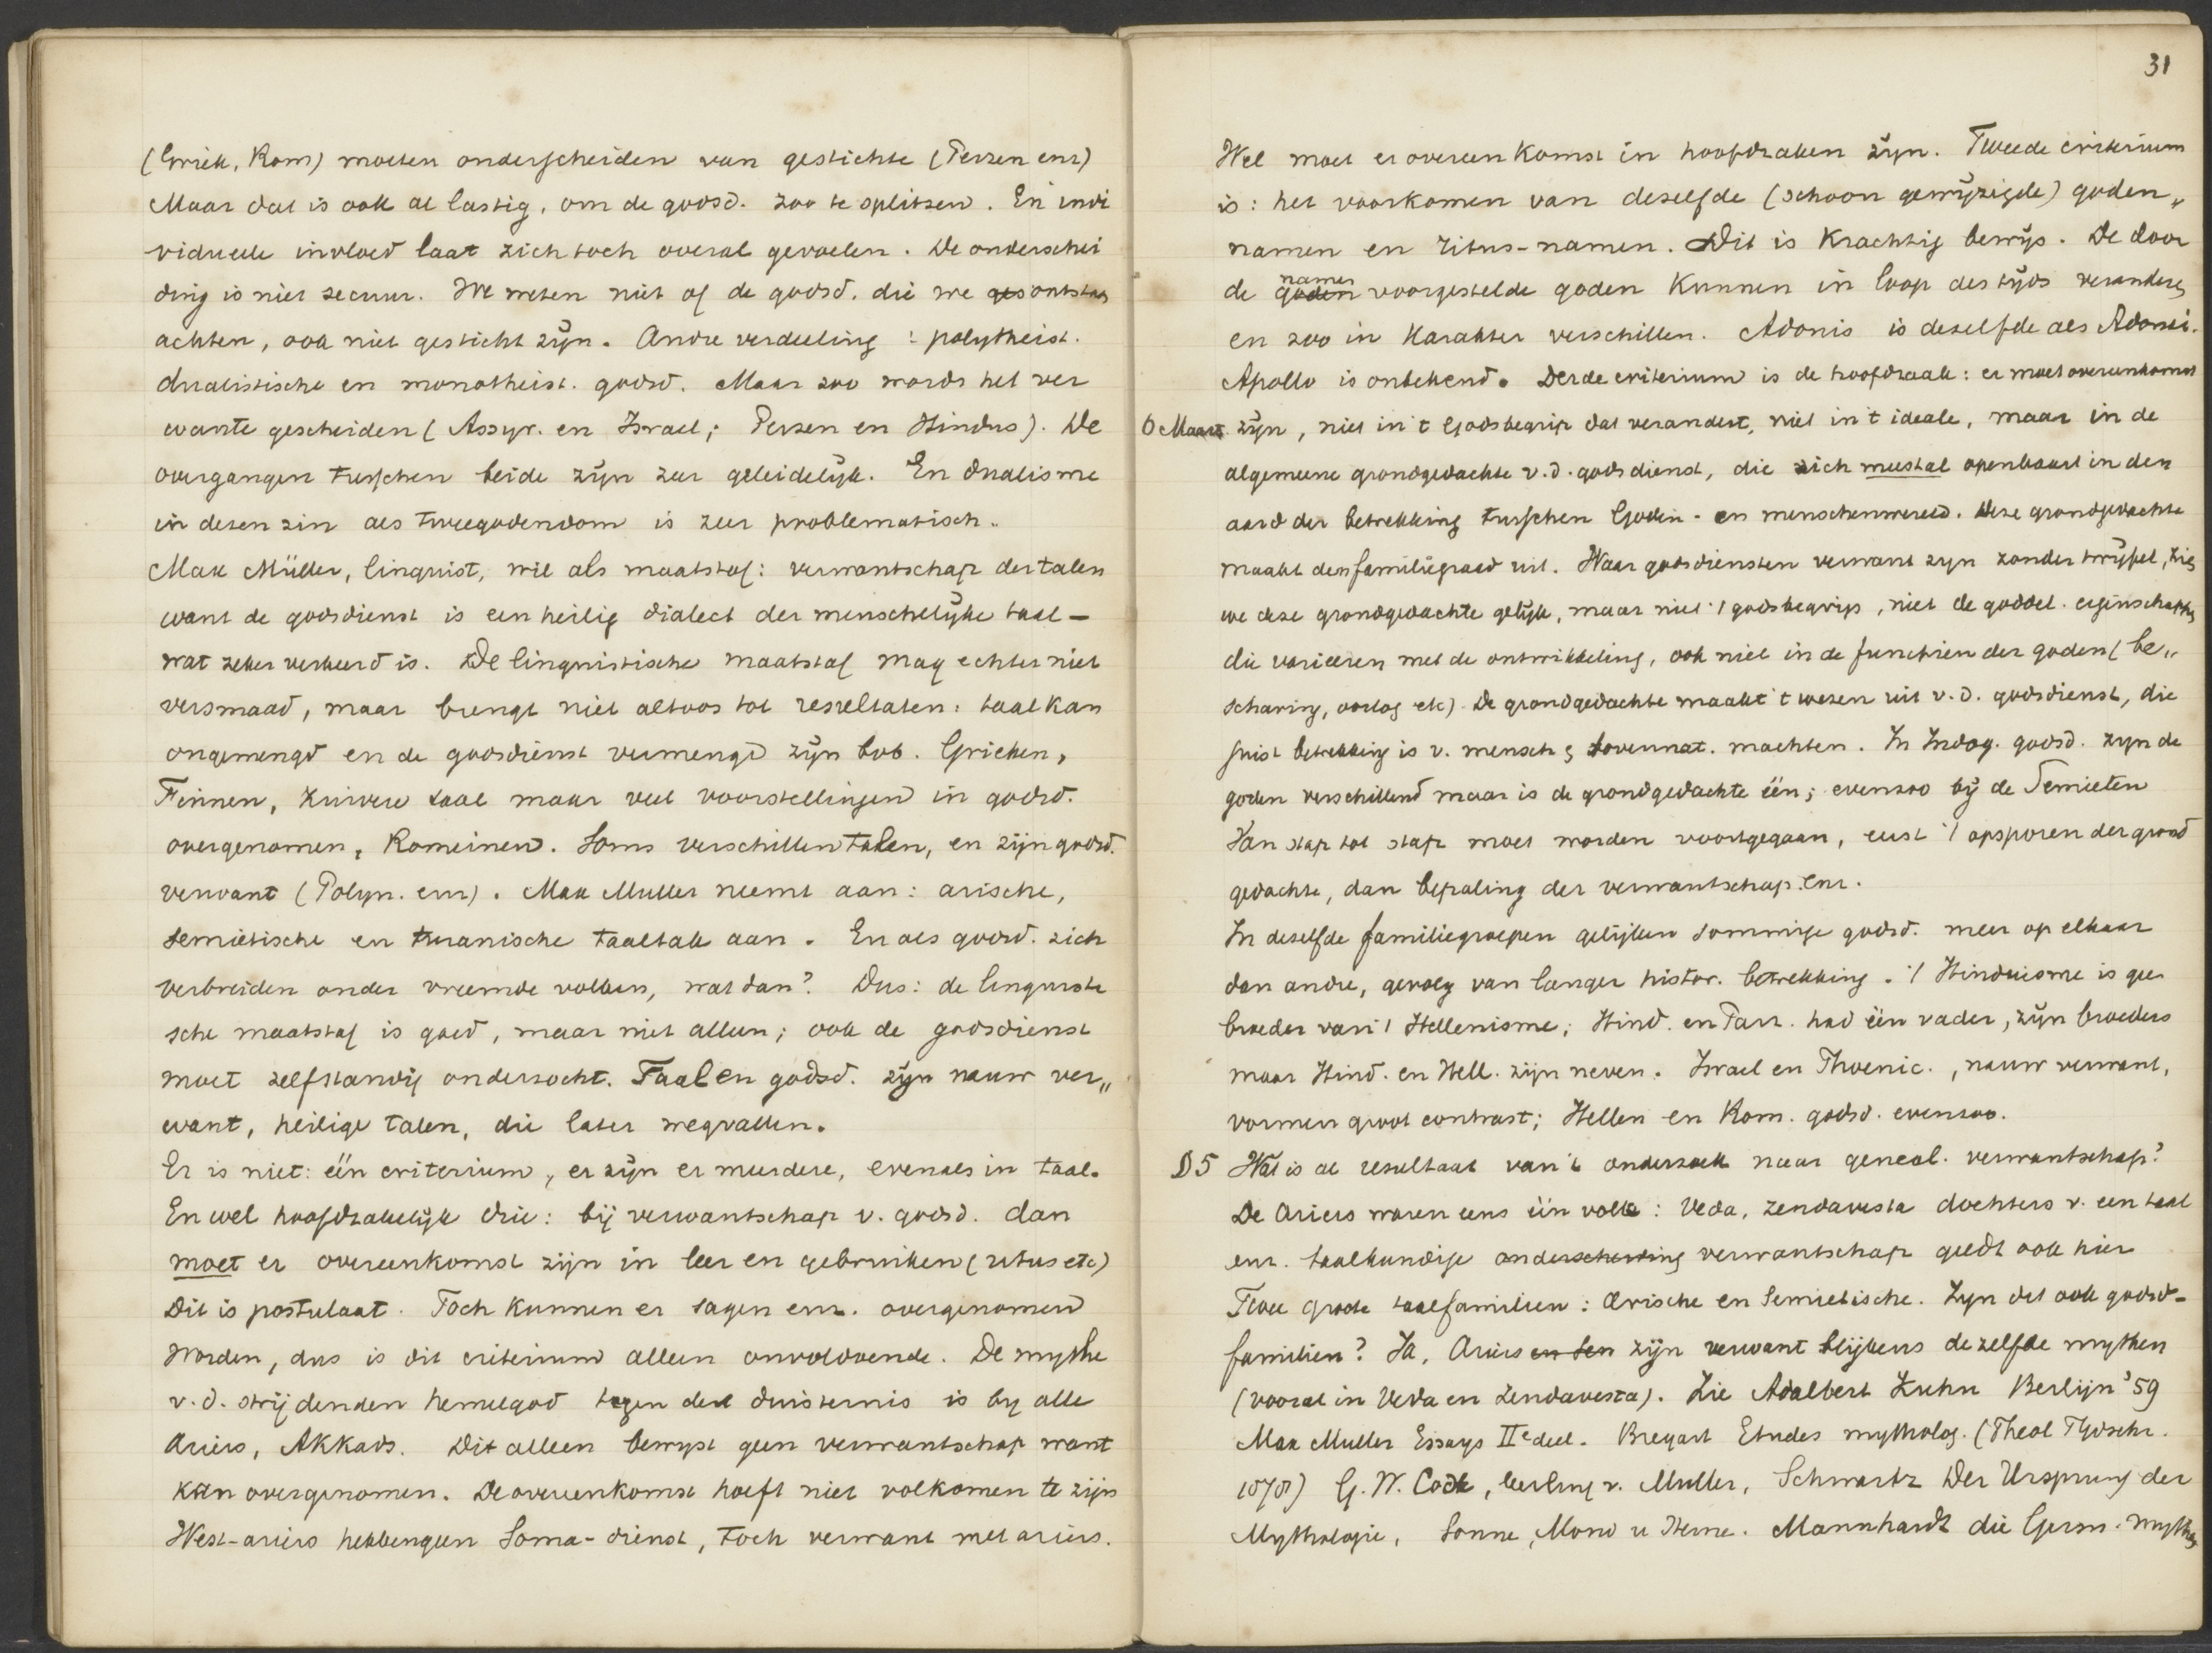 (Griek, Rom) moeten onderscheiden van gestichte (Perzen enz)
Maar dat is ook al lastig, om de godsd. zoo te splitsen. En indi
vidueele invloed laat zich toch overal gevoelen. De onderschei
ding is niet secuur. We weten niet of de godsd. die we ges ontstaan
achten, ook niet gesticht zijn. Andre verdeeling : polytheist.
dualistische en monotheist. godsd. Maar zoo wordt het ver
wante gescheiden (Assyr. en Israel; Perzen en Hindus). De
overgangen tusschen beide zijn zeer geleidelijk. En dualisme
in dezen zin als tweegodendom is zeer problematisch.
Max Müller, linguist, wil als maatstaf: verwantschap der talen
want de godsdienst is een heilig dialect der menschelijke taal –
wat zeker verkeerd is. De linguistische maatstaf mag echter niet
versmaad, maar brengt niet altoos tot resultaten: taal kan
ongemengd en de godsdienst vermengd zijn bvb. Grieken,
Finnen, zuivere taal maar veel voorstellingen in godsd.
overgenomen, Romeinen. Soms verschillen talen, en zijn godsd.
verwant (Polyn. enz). Max Muller neemt aan: arische,
semietische en turanische taaltak aan. En als godsd. zich
verbreiden onder vreemde volken, wat dan? Dus: de linguisti
sche maatstaf is goed, maar niet alleen; ook de godsdienst
moet zelfstandig onderzocht. Taal en godsd. zijn nauw ver„
want, heilige talen, die later wegvallen.
Er is niet: één criterium, er zijn er meerdere, evenals in taal.
En wel hoofdzakelijk drie: bij verwantschap v. godsd. dan
moet er overeenkomst zijn in leer en gebruiken (ritus etc)
Dit is postulaat. Toch kunnen er sagen enz. overgenomen
worden, dus is dit criterium alleen onvoldoende. De mythe
v.d. strijdenden hemelgod tegen de duisternis is by alle
Ariërs, Akkads. Dit alleen bewyst geen verwantschap want
kan overgenomen. De overeenkomst hoeft niet volkomen te zijn
West-ariërs hebben geen Soma-dienst, toch verwant met ariërs.
31
Wel moet er overeenkomst in hoofdzaken zijn. Tweede criterium
is: het voorkomen van dezelfde (schoon gewijzigde) goden„
namen en ritus-namen. Dit is krachtig bewijs. De door
de goden namen voorgestelde goden kunnen in loop des tijds veranderen
en zoo in karakter verschillen. Adonis is dezelfde als Adonai.
Apollo is onbekend. Derde criterium is de hoofdzaak: er moet overeenkomst
6 Maart zijn, niet in 't Godsbegrip dat verandert, niet in 't ideale, maar in de
algemeene grondgedachte v.d. godsdienst, die zich meestal openbaart in den
aard der betrekking tusschen Goden- en menschenwereld. Deze grondgedachte
maakt den familiegraad uit. Waar godsdiensten verwant zyn zonder twijfel, zien
we deze grondgedachte gelijk, maar niet 't godsbegrip, niet de goddel. eigenschappen
die varieeren met de ontwikkeling, ook niet in de functien der goden (be„
scharing, oorlog etc) De grondgedachte maakt 't wezen uit v.d. godsdienst, die
juist betrekking is v. mensch & bovennat. machten. In Indog. godsd. zyn de
goden verschillend maar is de grondgedachte één; evenzoo bij de Semieten
Van stap tot stap moet worden voortgegaan, eerst 't opsporen der grond
gedachte, dan bepaling der verwantschap enz.
In dezelfde familiegroepen gelijken sommige godsd. meer op elkaar
dan andre, gevolg van langer histor. betrekking. 't Hinduisme is geen
broeder van 't Hellenisme; Hind. en Parz. had één vader, zijn broeders
maar Hind. en Hell. zijn neven. Israel en Phoenic., nauw verwant,
vormen groot contrast; Hellen en Rom. godsd. evenzoo.
D5 Wat is al resultaat van 't onderzoek naar geneal. verwantschap?
De Ariers waren eens één volk: Veda, Zendavesta dochters v. een taal
enz. taalkundige onderscheiding verwantschap geldt ook hier
Twee groote taalfamilien: Arische en Semietische. Zyn dit ook godsd-
familien? Ja, Ariers en Sem zijn verwant blijkens dezelfde mythen
(vooral in Veda en Zendavesta). Zie Adalbert Kuhn Berlijn '59
Max Muller Essays IIe deel. Etudes mytholog. (Theol Tijdschr.
1878) G. W. Cox, leerling v. Muller, Schwartz Der Ursprung der
Mythologie, Sonne, Mond u Sterne. Mannhardt die Germ. Mythen